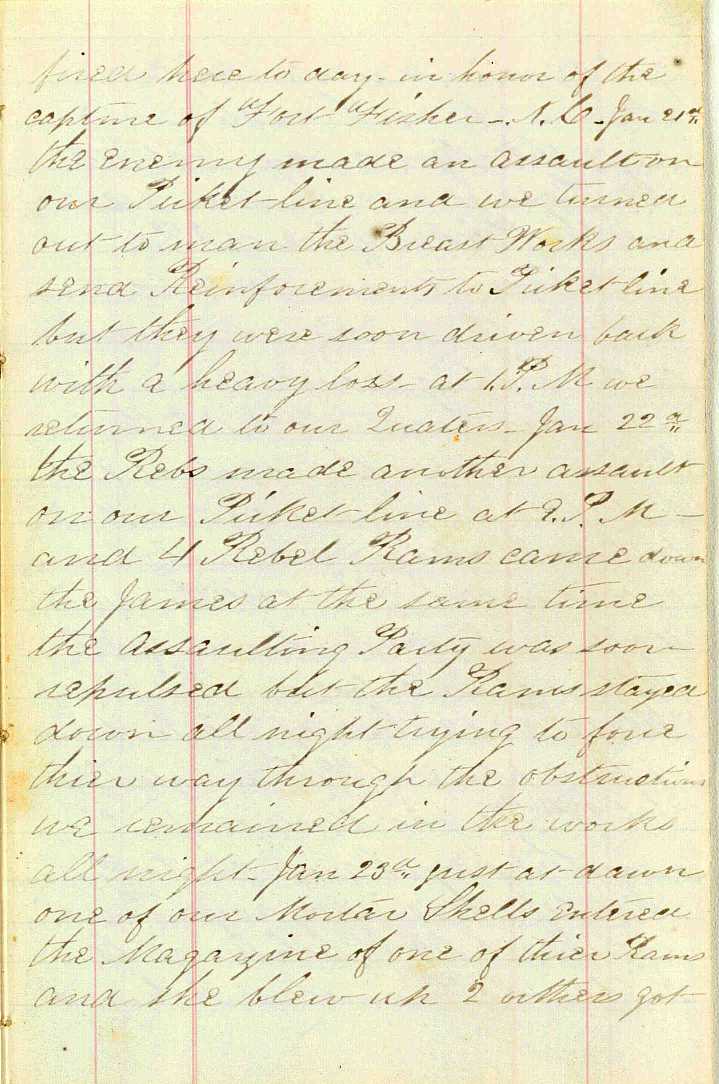 fired here to day - in honor of the
capture of "Fort "Fisher -. N.C - Jan 21st
the Enemy made an assault on
our Picket-line and we turned
out to man the Breast Works and
send Reinforcements to Picket line
but they were soon driven back
with a heavy loss - at 1.P.M we
returned to our Quaters - Jan 22d
the Rebs made another assault
on our Picket-line at 2.P.M -
and 4 Rebel Rams came down
the James at the same time
the assaulting Party was soon
repulsed but the Rams stayed
down all night trying to force
thier way through the obstructions
we remained in the works
all night - Jan 23d just at dawn
one of our Mortar Shells Entered
the Magazine of one of thier Rams
and she blew up 2 others got